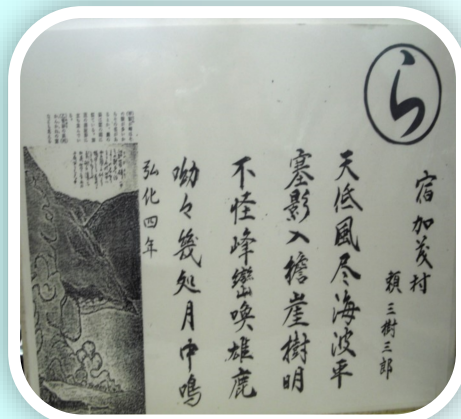 ら
宿加茂村
頼三樹三郎
天低風尽海波平
塞影入檐崖樹明
不怪峰巒喚雄鹿
呦々幾処月中鳴
弘化四年